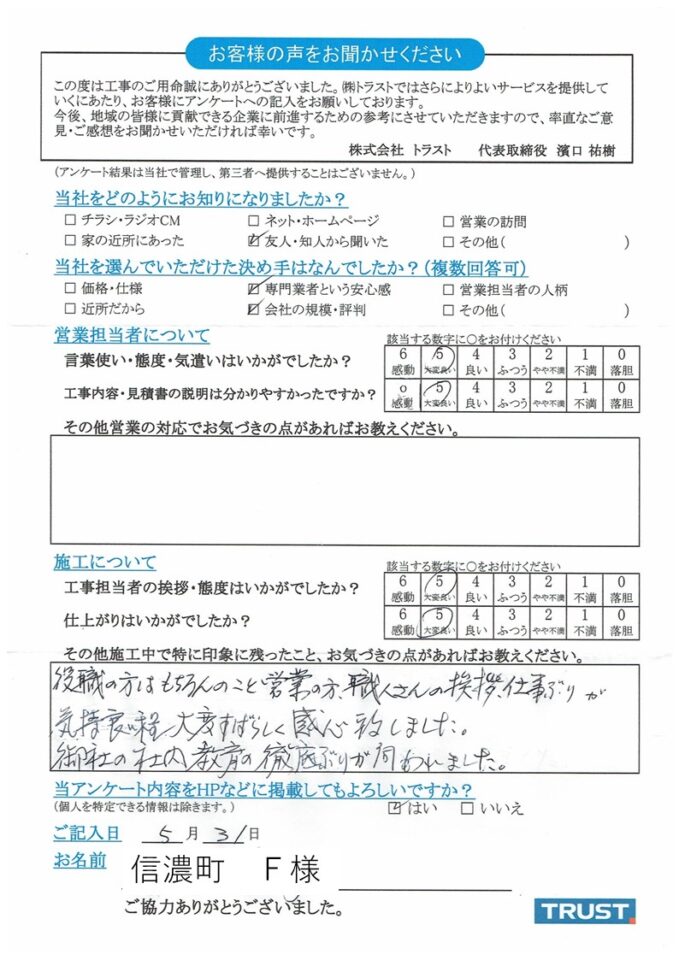 お客様の声をお聞かせください
この度は工事のご用命誠にありがとうございました。㈱トラストではさらによりよいサービスを提供して
いくにあたり、お客様にアンケートへの記入をお願いしております。
今後、地域の皆様に貢献できる企業に前進するための参考にさせていただきますので、率直なご意
見・ご感想をお聞かせいただければ幸いです。
株式会社 トラスト 代表取締役 濱口 祐樹
(アンケート結果は当社で管理し、第三者へ提供することはございません。)
当社をどのようにお知りになりましたか？
□ チラシ・ラジオCM □ ネット・ホームページ □ 営業の訪問
□ 家の近所にあった ☑ 友人・知人から聞いた □ その他( )
当社を選んでいただけた決め手はなんでしたか？(複数回答可)
□ 価格・仕様 ☑ 専門業者という安心感 □ 営業担当者の人柄
□ 近所だから ☑ 会社の規模・評判 □ その他( )
営業担当者について 該当する数字に○をお付けください
言葉使い・態度・気遣いはいかがでしたか？ 6 5 4 3 2 1 0
感動 大変良い 良い ふつう やや不満 不満 落胆
工事内容・見積書の説明は分かりやすかったですか？ 6 5 4 3 2 1 0
感動 大変良い 良い ふつう やや不満 不満 落胆
その他営業の対応でお気づきの点があればお教えください。
施工について 該当する数字に○をお付けください
工事担当者の挨拶・態度はいかがでしたか？ 6 5 4 3 2 1 0
感動 大変良い 良い ふつう やや不満 不満 落胆
仕上がりはいかがでしたか？ 6 5 4 3 2 1 0
感動 大変良い 良い ふつう やや不満 不満 落胆
その他施工中で特に印象に残ったこと、お気づきの点があればお教えください。
役職の方はもちろんのこと営業の方、職人さんの挨拶、仕事ぶりが
気持良い程大変すばらしく感心致しました。
御社の社内教育の徹底ぶりが伺われました。
当アンケート内容をHPなどに掲載してもよろしいですか？
(個人を特定できる情報は除きます。) ☑ はい □ いいえ
ご記入日 5 月 31 日
お名前 信濃町 F様
ご協力ありがとうございました。
TRUST.